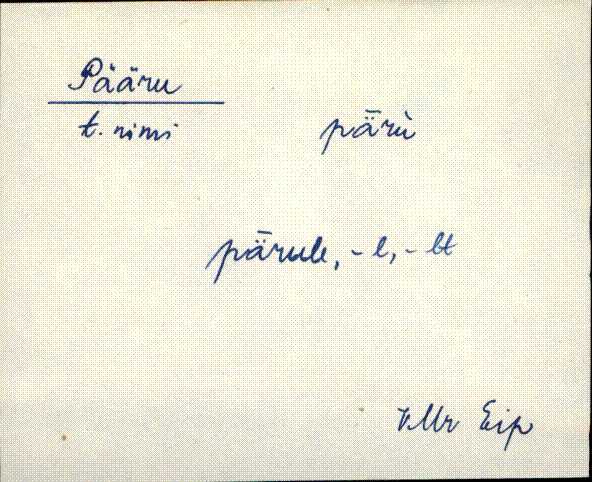 Pääru
t. nimi
pǟrù
pǟrule, -l, -lt
V.Mr Eip